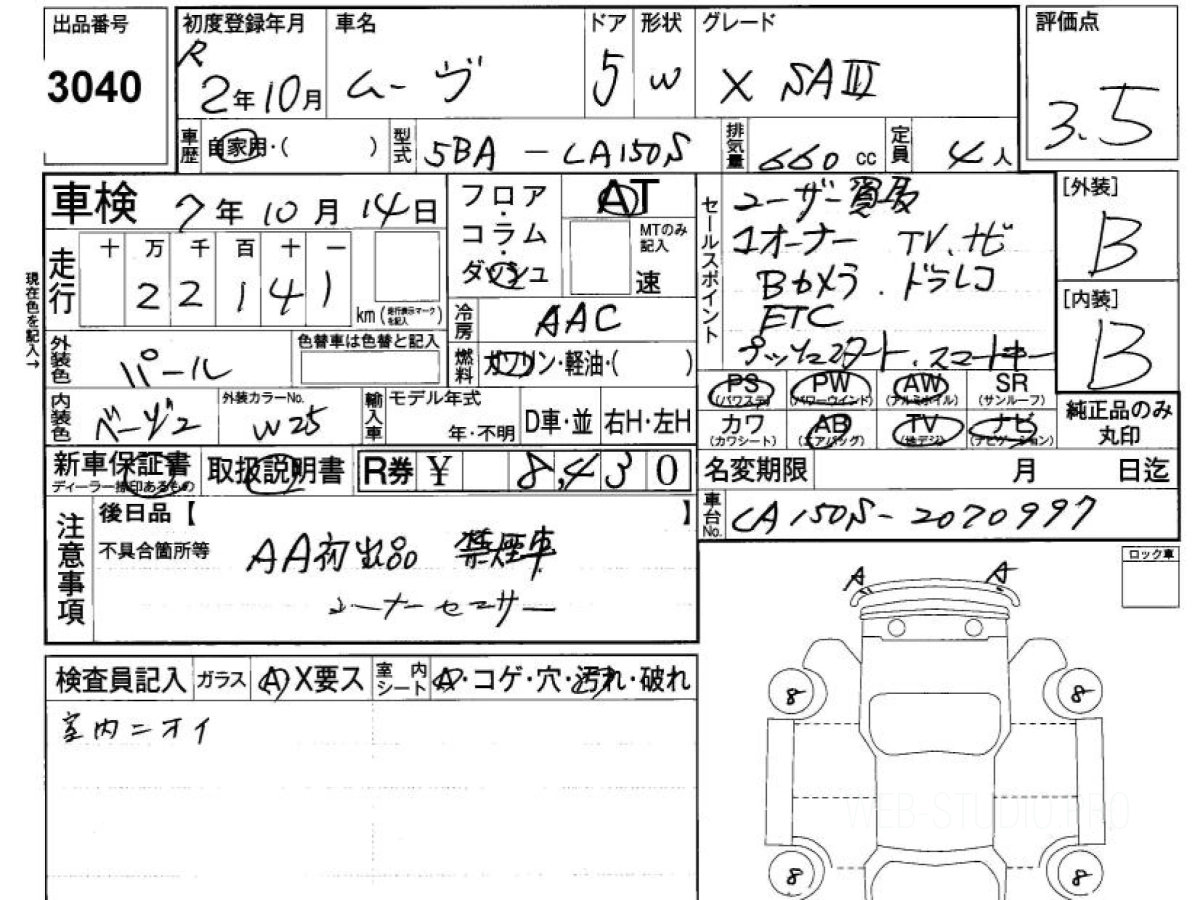 出品番号
3040
初度登録年月 R 2年10月
車名 ムーヴ
ドア 5
形状 W
グレード X SAⅢ
評価点 3.5
車歴 自家用・( )
型式 5BA - LA150S
排気量 660 cc
定員 4人
車検 7年10月14日
現在色を記入→
走行 十 万 千 百 十 一
2 2 1 4 1 km (走行表示マークを記入)
フロア・コラム・ダッシュ
AT
MTのみ記入
速
冷房 AAC
燃料 ガソリン・軽油・( )
外装色 パール
色替車は色替と記入
内装色 ベージュ
外装カラーNo. W25
輸入車 モデル年式 年・不明 D車・並 右H・左H
新車保証書
ディーラー捺印あるもの
取扱説明書
R券 ¥ 8,430
セールスポイント
ユーザー買取
1オーナー TV.ナビ
Bカメラ.ドラレコ
ETC
プッシュスタート.スマートキー
[外装] B
[内装] B
PS (パワステ) PW (パワーウインド) AW (アルミホイル) SR (サンルーフ)
カワ (カワシート) AB (エアバッグ) TV (地デジ) ナビ (ナビゲーション)
純正品のみ丸印
名変期限 月 日迄
車台No. LA150S-2070997
注意事項
後日品【 】
不具合箇所等 AA初出品 禁煙車
コーナーセンサー
検査員記入 ガラス A X要ス 室内シート A・コゲ・穴・汚れ・破れ
室内ニオイ
ロック車
A A
8 8
8 8
WEB-STUDIO.PRO